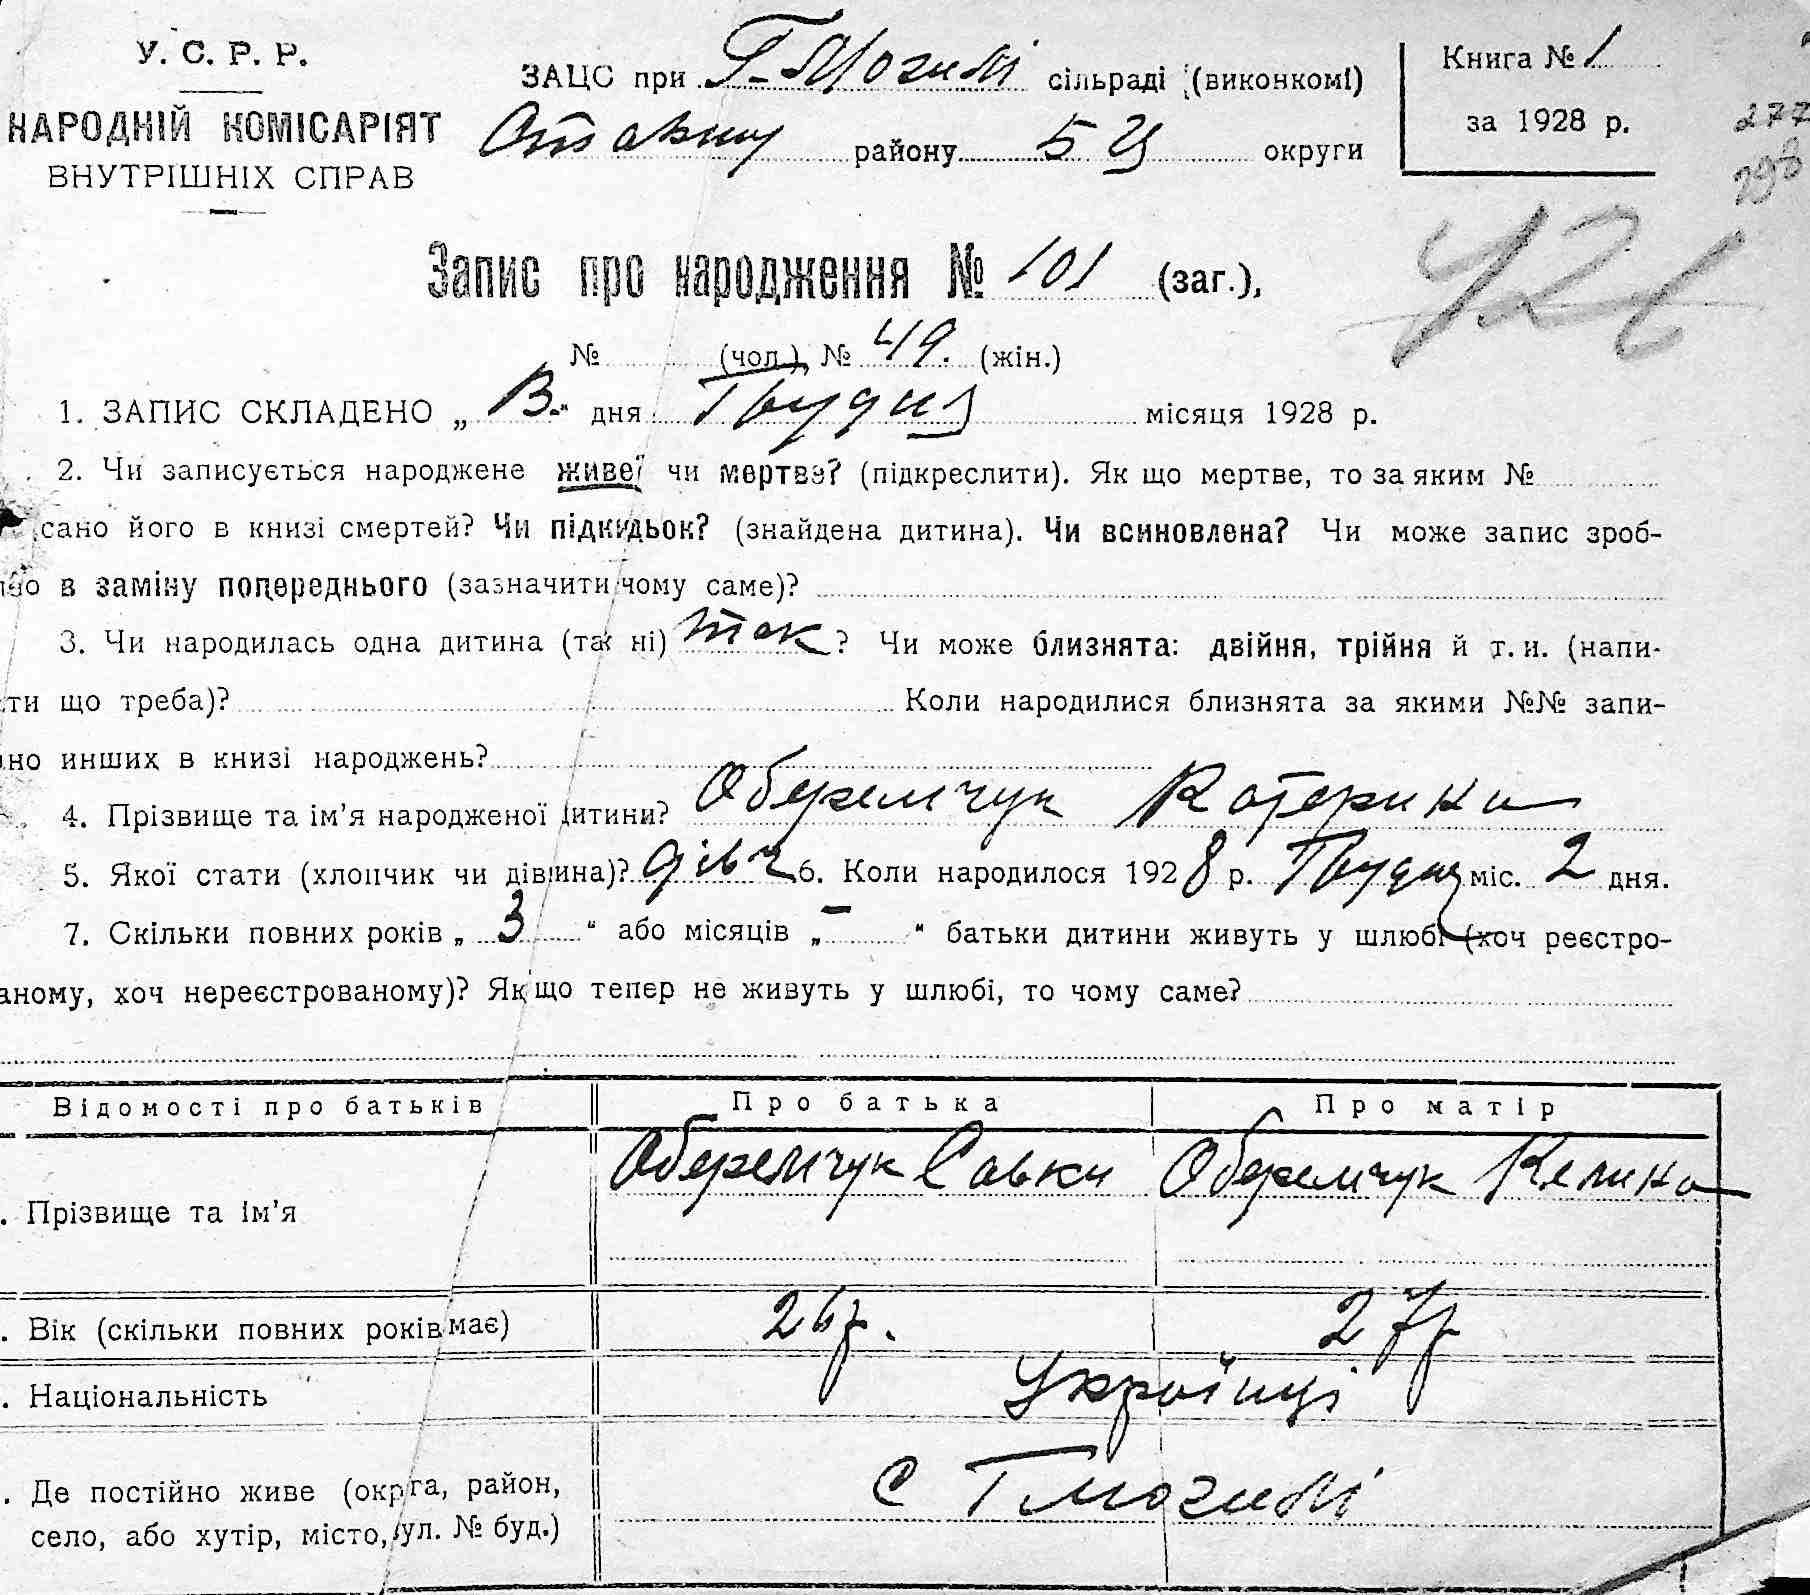 У. С. Р. Р.
НАРОДНІЙ КОМІСАРІЯТ
ВНУТРІШНІХ СПРАВ
ЗАЦС при Г-Могилі сільраді (виконкомі)
району БЦ округи
Книга № 1
за 1928 р.
277
298
Запис про народження № 101 (заг.),
№ (чол.), № 49. (жін.)
1. ЗАПИС СКЛАДЕНО „ “ дня Грудня місяця 1928 р.
2. Чи записується народжене живе чи мертве? (підкреслити). Як що мертве, то за яким №
сано його в книзі смертей? Чи підкидьок? (знайдена дитина). Чи всиновлена? Чи може запис зроб-
но в заміну попереднього (зазначити чому саме)?
3. Чи народилась одна дитина (так ні) так? Чи може близнята: двійня, трійня й т. и. (напи-
ти що треба)? Коли народилися близнята за якими №№ запи-
но инших в книзі народжень?
4. Прізвище та ім’я народженої дитини? Оберемчук Катерина
5. Якої стати (хлопчик чи дівчина)? дівч 6. Коли народилося 1928 р. Грудня міс. 2 дня.
7. Скільки повних років „ 3 “ або місяців „ – “ батьки дитини живуть у шлюбі (хоч реєстро-
аному, хоч нереєстрованому)? Як що тепер не живуть у шлюбі, то чому саме?
Відомості про батьків Про батька Про матір
. Прізвище та ім’я Оберемчук Савка Оберемчук Келина
. Вік (скільки повних років має) 26р. 27р
. Національність Українці
. Де постійно живе (округа, район,
село, або хутір, місто, вул. № буд.) с Г Могилі